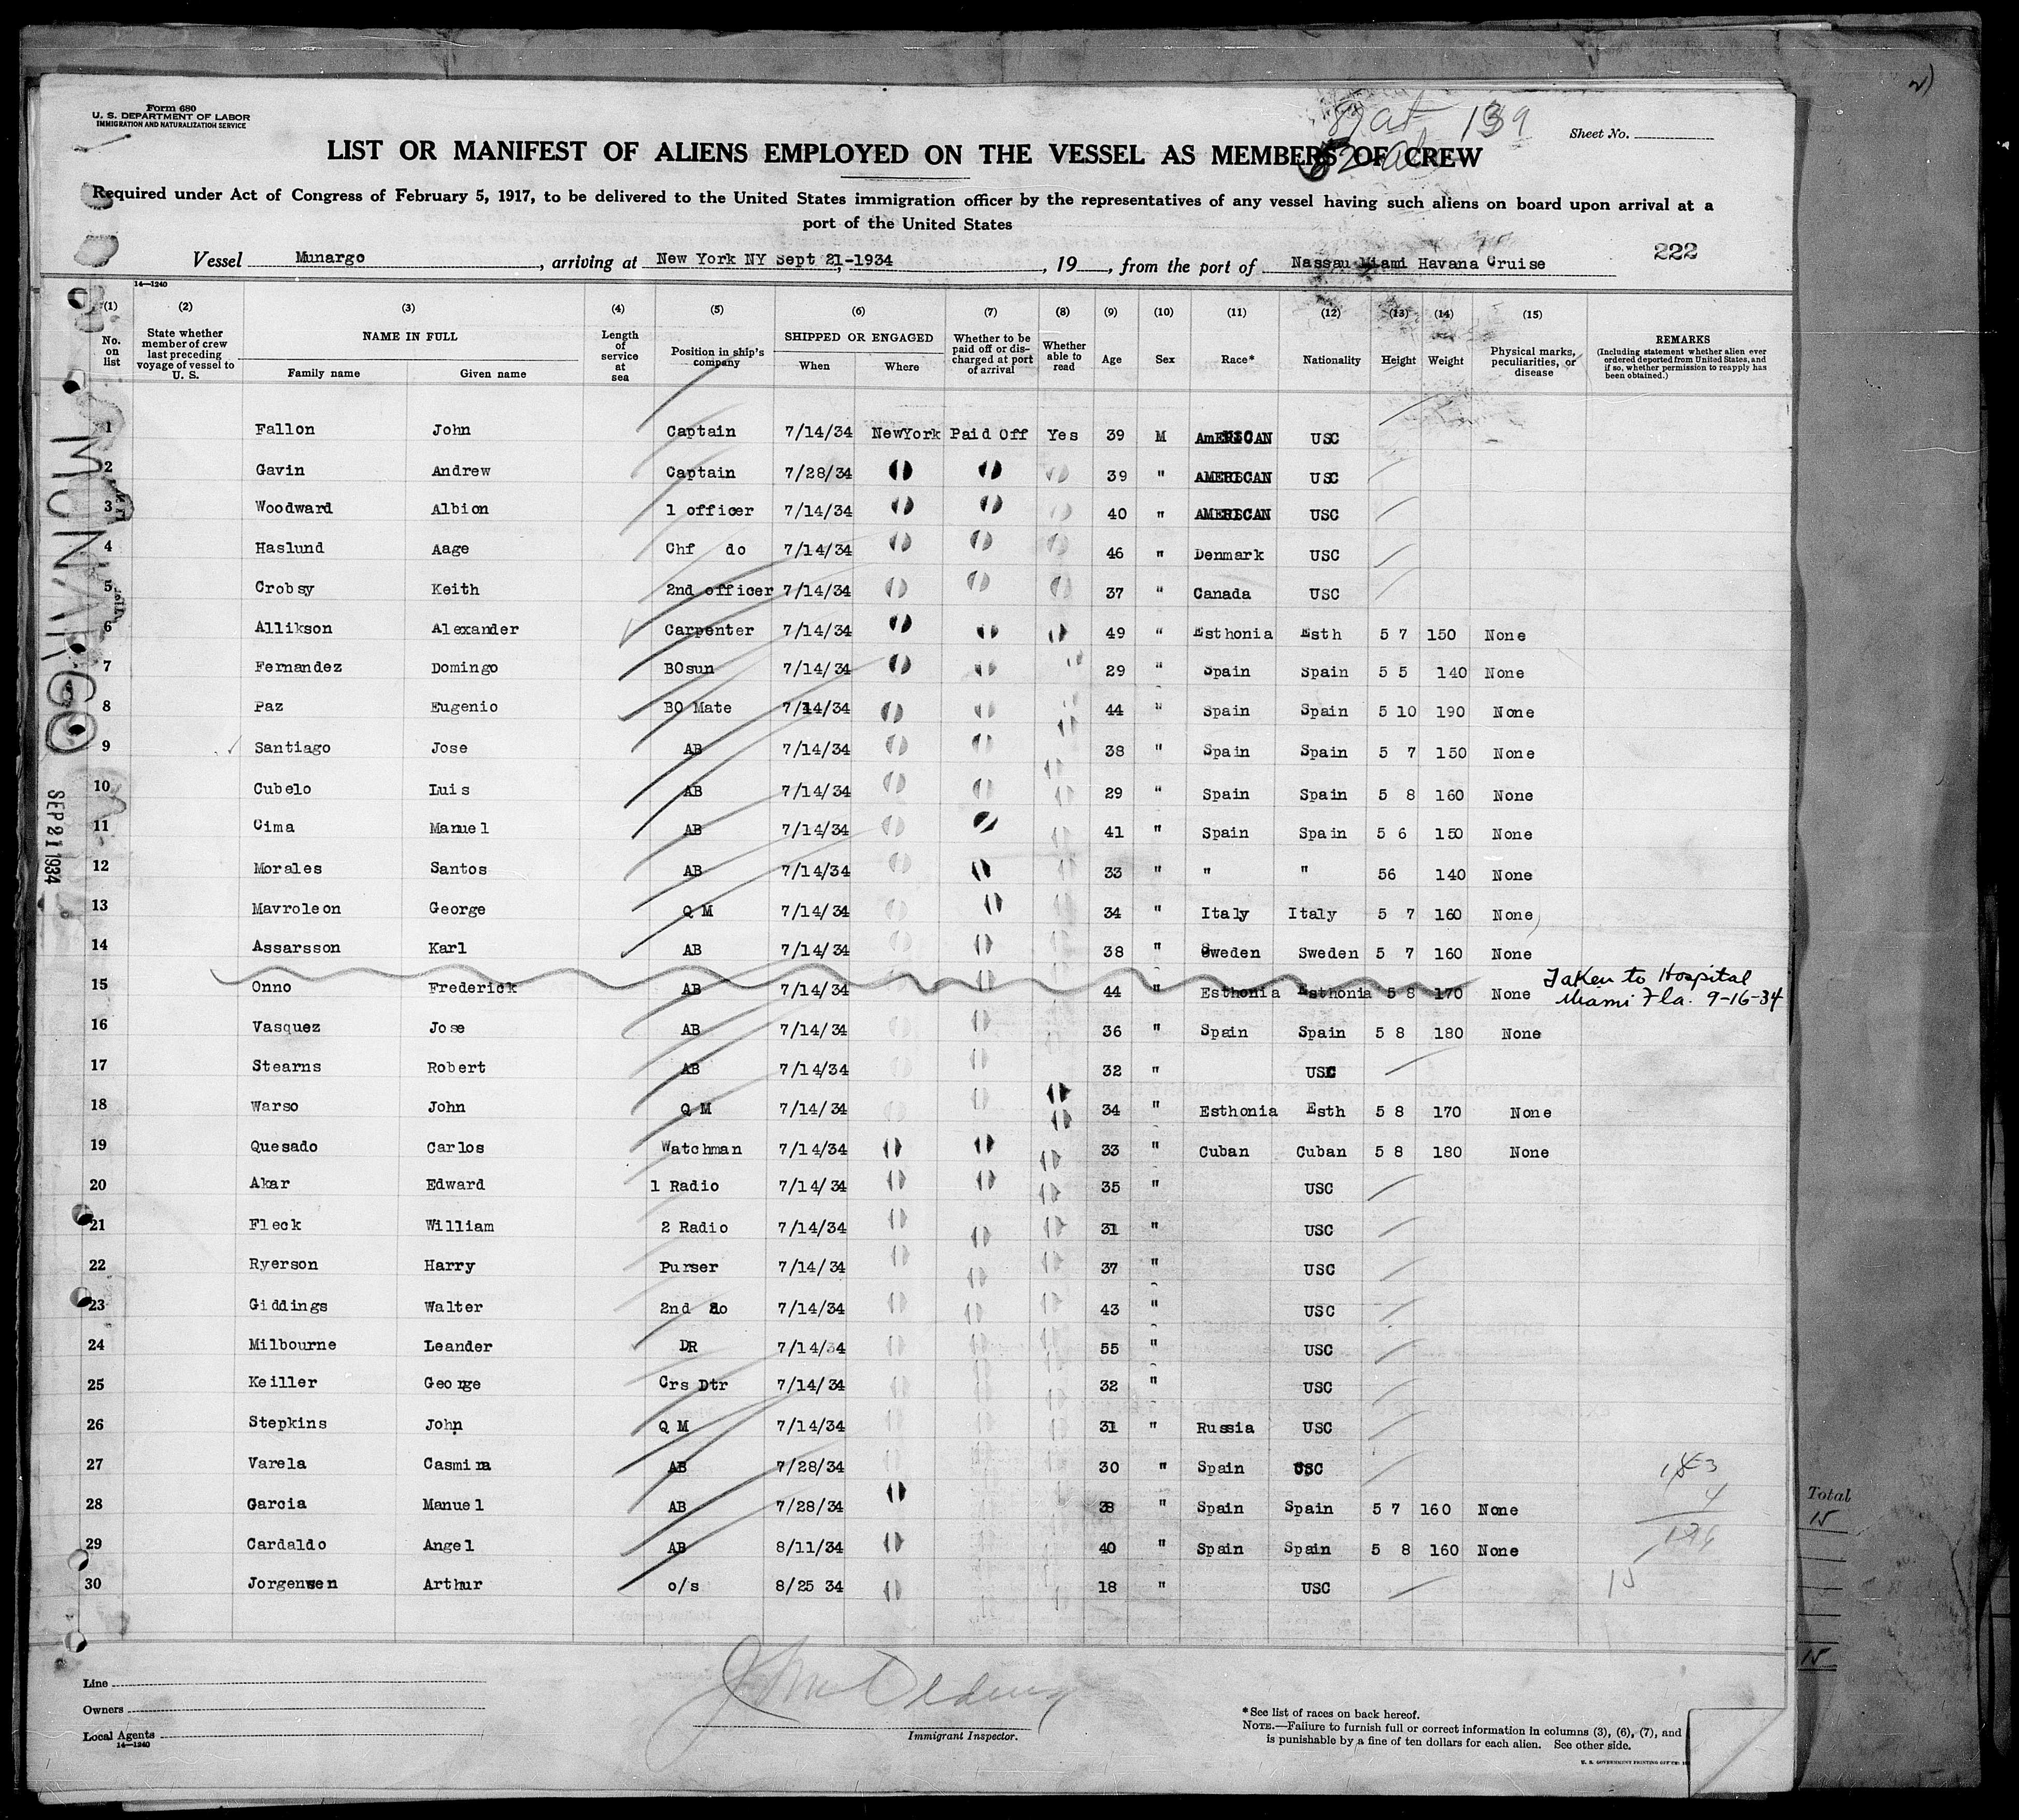 Form 680
U. S. DEPARTMENT OF LABOR
IMMIGRATION AND NATURALIZATION SERVICE
Sheet No.
LIST OR MANIFEST OF ALIENS EMPLOYED ON THE VESSEL AS MEMBERS OF CREW
Required under Act of Congress of February 5, 1917, to be delivered to the United States immigration officer by the representatives of any vessel having such aliens on board upon arrival at a
port of the United States
Vessel Munargo, arriving at New York NY Sept 21-1934, 19, from the port of Nassau Miami Havana Cruise 222
14—1240
(1) (2) (3) (4) (5) (6) (7) (8) (9) (10) (11) (12) (13) (14) (15)
No. on list
State whether member of crew last preceding voyage of vessel to U. S.
NAME IN FULL
Family name Given name
Length of service at sea
Position in ship's company
SHIPPED OR ENGAGED
When Where
Whether to be paid off or discharged at port of arrival
Whether able to read
Age Sex Race* Nationality Height Weight
Physical marks, peculiarities, or disease
REMARKS
(Including statement whether alien ever ordered deported from United States, and if so, whether permission to reapply has been obtained.)
1 Fallon John Captain 7/14/34 NewYork Paid Off Yes 39 M AmERICAN USC
2 Gavin Andrew Captain 7/28/34 " " " 39 " AMERICAN USC
3 Woodward Albion 1 officer 7/14/34 " " " 40 " AMERICAN USC
4 Haslund Aage Chf do 7/14/34 " " " 46 " Denmark USC
5 Crobsy Keith 2nd officer 7/14/34 " " " 37 " Canada USC
6 Allikson Alexander Carpenter 7/14/34 " " " 49 " Esthonia Esth 5 7 150 None
7 Fernandez Domingo BOsun 7/14/34 " " " 29 " Spain Spain 5 5 140 None
8 Paz Eugenio BO Mate 7/14/34 " " " 44 " Spain Spain 5 10 190 None
9 Santiago Jose AB 7/14/34 " " " 38 " Spain Spain 5 7 150 None
10 Cubelo Luis AB 7/14/34 " " " 29 " Spain Spain 5 8 160 None
11 Cima Manuel AB 7/14/34 " " " 41 " Spain Spain 5 6 150 None
12 Morales Santos AB 7/14/34 " " " 33 " " " 56 140 None
13 Mavroleon George Q M 7/14/34 " " " 34 " Italy Italy 5 7 160 None
14 Assarsson Karl AB 7/14/34 " " " 38 " Sweden Sweden 5 7 160 None
15 Onno Frederick AB 7/14/34 " " " 44 " Esthonia Esthonia 5 8 170 None Taken to Hospital
Miami Fla. 9-16-34
16 Vasquez Jose AB 7/14/34 " " " 36 " Spain Spain 5 8 180 None
17 Stearns Robert AB 7/14/34 " " " 32 " USC
18 Warso John Q M 7/14/34 " " " 34 " Esthonia Esth 5 8 170 None
19 Quesado Carlos Watchman 7/14/34 " " " 33 " Cuban Cuban 5 8 180 None
20 Akar Edward 1 Radio 7/14/34 " " " 35 " USC
21 Fleck William 2 Radio 7/14/34 " " " 31 " USC
22 Ryerson Harry Purser 7/14/34 " " " 37 " USC
23 Giddings Walter 2nd do 7/14/34 " " " 43 " USC
24 Milbourne Leander DR 7/14/34 " " " 55 " USC
25 Keiller George Crs Dtr 7/14/34 " " " 32 " USC
26 Stepkins John Q M 7/14/34 " " " 31 " Russia USC
27 Varela Casmira AB 7/28/34 " " " 30 " Spain USC
28 Garcia Manuel AB 7/28/34 " " " 38 " Spain Spain 5 7 160 None
29 Cardaldo Angel AB 8/11/34 " " " 40 " Spain Spain 5 8 160 None
30 Jorgensen Arthur o/s 8/25 34 " " " 18 " USC
MUNARGO
SEP 21 1934
Total
15
15
15
Line
Owners
Local Agents
14—1240
Immigrant Inspector.
*See list of races on back hereof.
NOTE.—Failure to furnish full or correct information in columns (3), (6), (7), and
is punishable by a fine of ten dollars for each alien. See other side.
U. S. GOVERNMENT PRINTING OFFICE